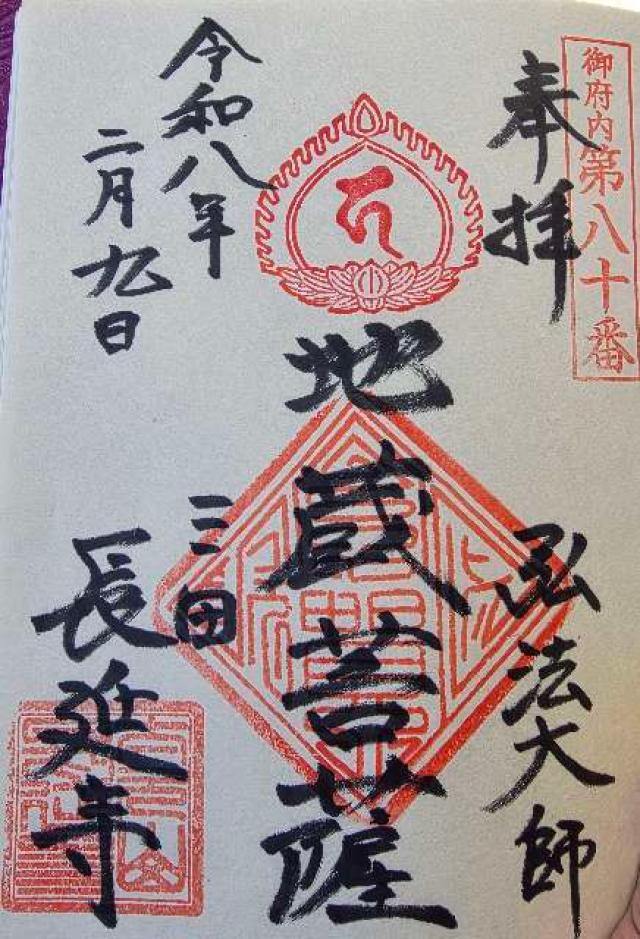 御府内第八十番
奉拝
弘法大師
地蔵菩薩
三田
長延寺
令和八年
二月九日